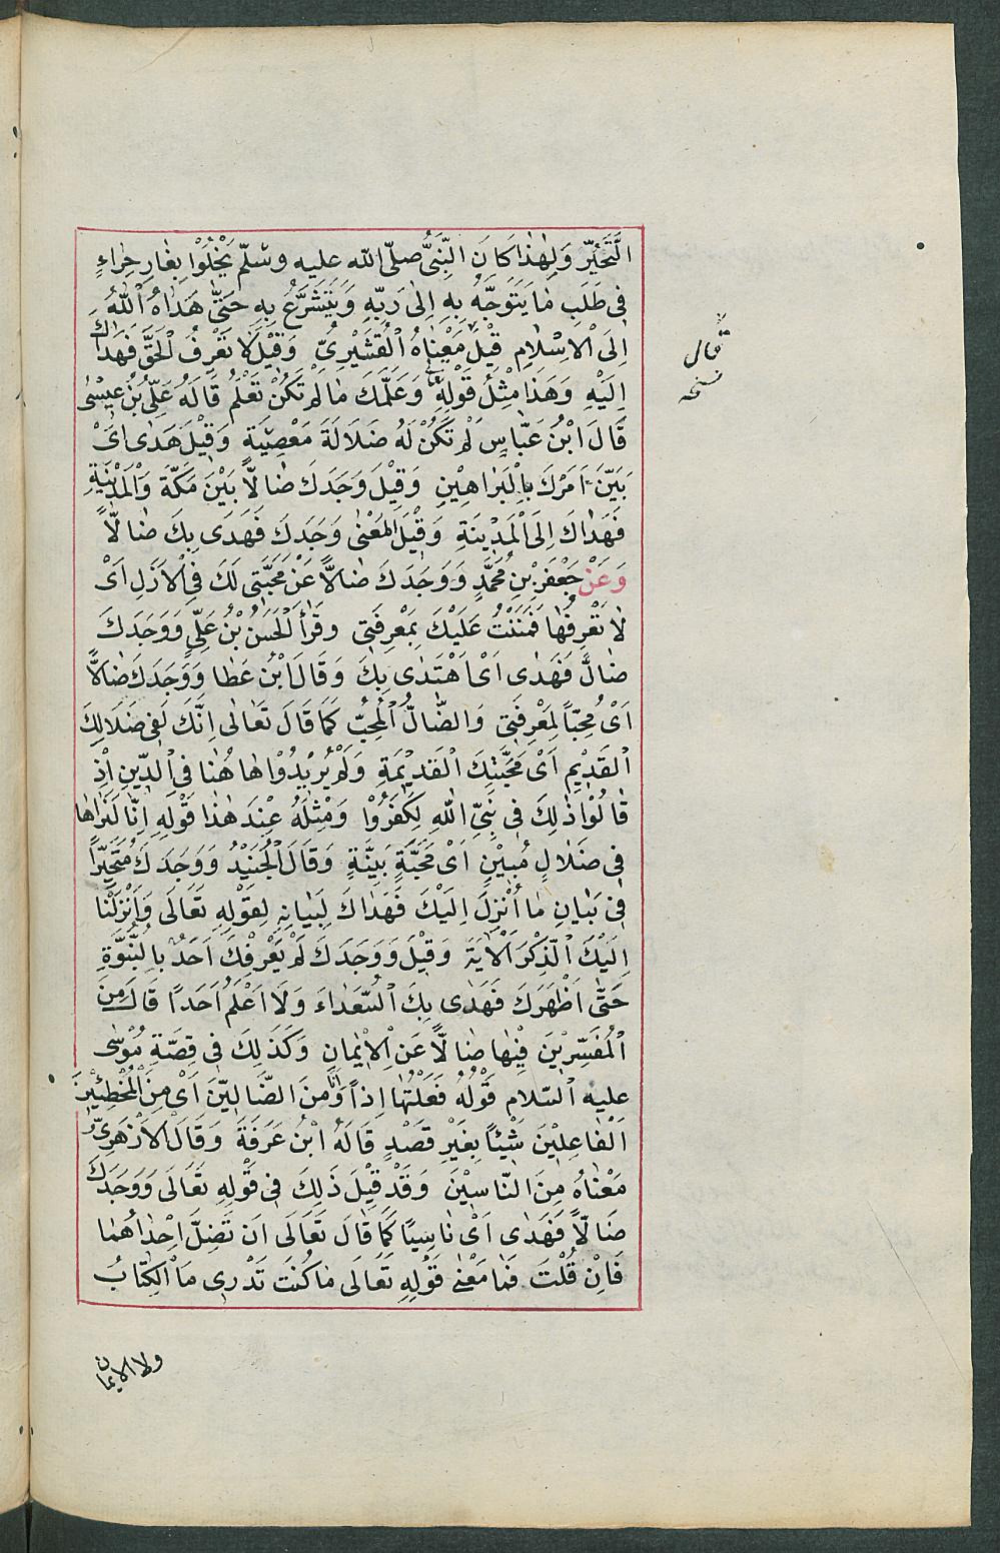 التَّحَيُّرِ وَلِهٰذَا كَانَ النَّبِىُّ صلّى الله عليه وسلّم يَخْلُوْا بِغَارِ حِرَاءٍ
فِى طَلَبِ مَا يَتَوَجَّهُ بِهِ اِلٰى رَبِّهِ وَيَتَشَرَّعُ بِهِ حَتّٰى هَدَاهُ اللّٰهُ
اِلَى الْاِسْلَامِ قِيْلَ مَعْنَاهُ الْقُشَيْرِىِّ وَقِيْلَ لَا تَعْرِفُ الْحَقَّ فَهَدَاكَ
اِلَيْهِ وَهَذَا مِثْلُ قَوْلِهِ وَعَلَّمَكَ مَا لَمْ تَكُنْ تَعْلَمُ قَالَهُ عَلِىُّ بْنُ عِيْسٰى
قَالَ ابْنُ عَبَّاسٍ لَمْ تَكُنْ لَهُ ضَلَالَةَ مَعْصِيَةٍ وَقِيْلَ هَدٰى اَىْ
بَيَّنَ اَمْرَكَ بِالْبَرَاهِيْنِ وَقِيْلَ وَجَدَكَ ضَالًّا بَيْنَ مَكَّةَ وَالْمَدِيْنَةِ
فَهَدَاكَ اِلَى الْمَدِيْنَةِ وَقِيْلَ الْمَعْنٰى وَجَدَكَ فَهَدَى بِكَ ضَالًّا
وَعَنْ جَعْفَرِ بْنِ مُحَمَّدٍ وَوَجَدَكَ ضَالًّا عَنْ مَحَبَّتِى لَكَ فِى الْاَزَلِ اَىْ
لَا تَعْرِفُهَا فَمَنَنْتُ عَلَيْكَ بِمَعْرِفَتِى وَقَرَأَ الْحَسَنُ بْنُ عَلِىٍّ وَوَجَدَكَ
ضَالٌّ فَهَدٰى اَىْ اهْتَدٰى بِكَ وَقَالَ ابْنُ عَطَا وَوَجَدَكَ ضَالًّا
اَىْ مُحِبًّا لِمَعْرِفَتِى وَالضَّالُّ الْمُحِبُّ كَمَا قَالَ تَعَالٰى اِنَّكَ لَفِى ضَلَالِكَ
الْقَدِيْمِ اَىْ مَحَبَّتِكَ الْقَدِيْمَةِ وَلَمْ يُرِيْدُوْا هَا هُنَا فِى الدِّيْنِ اِذْ
قَالُوْا ذٰلِكَ فِى نَبِىِّ اللّٰهِ لَكَفَرُوْا وَمِثْلَهُ عِنْدَ هٰذَا قَوْلِهِ اِنَّا لَنَرٰاهَا
فِى ضَلَالٍ مُبِيْنٍ اَىْ مَحَبَّةٍ بَيِّنَةٍ وَقَالَ الْجُنَيْدُ وَوَجَدَكَ مُتَحَيِّرًا
فِى بَيَانِ مَا اُنْزِلَ اِلَيْكَ فَهَدَاكَ لِبَيَانِهِ لِقَوْلِهِ تَعَالَى وَاَنْزَلْنَا
اِلَيْكَ الذِّكْرَ الْاٰيَةَ وَقِيْلَ وَوَجَدَكَ لَمْ يَعْرِفْكَ اَحَدٌ بِالنُّبُوَّةِ
حَتّٰى اَظْهَرَكَ فَهَدٰى بِكَ السُّعَدَاءَ وَلَا اَعْلَمُ اَحَدًا قَالَ مِنَ
الْمُفَسِّرِيْنَ فِيْهَا ضَالًّا عَنِ الْاِيْمَانِ وَكَذٰلِكَ فِى قِصَّةِ مُوْسٰى
عليه السّلام قَوْلُهُ فَعَلْتُهَا اِذًا وَاَنَا مِنَ الضَّالِيّنَ اَىْ مِنَ الْمُخْطِئِيْنَ
الْفَاعِلِيْنَ شَيْئًا بِغَيْرِ قَصْدٍ قَالَهُ ابْنُ عَرَفَةَ وَقَالَ الْاَزْهَرِىُّ
مَعْنَاهُ مِنَ النَّاسِيْنَ وَقَدْ قِيْلَ ذَلِكَ فِى قَوْلِهِ تَعَالَى وَوَجَدَكَ
ضَالًّا فَهَدٰى اَىْ نَاسِيًا كَمَا قَالَ تَعَالَى اَنْ تَضِلَّ اِحْدٰاهُمَا
فَاِنْ قُلْتَ فَمَا مَعْنٰى قَوْلِهِ تَعَالَى مَا كُنْتَ تَدْرِى مَا الْكِتَابُ
قال
نسخه
ولا الايمان